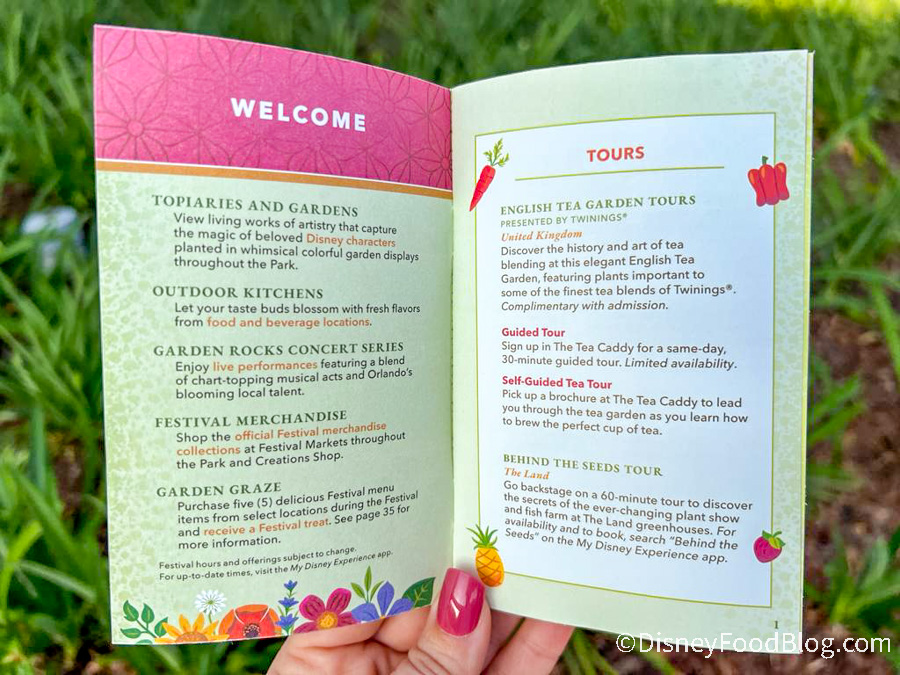 WELCOME
TOPIARIES AND GARDENS
View living works of artistry that capture
the magic of beloved Disney characters
planted in whimsical colorful garden displays
throughout the Park.
OUTDOOR KITCHENS
Let your taste buds blossom with fresh flavors
from food and beverage locations.
GARDEN ROCKS CONCERT SERIES
Enjoy live performances featuring a blend
of chart-topping musical acts and Orlando's
blooming local talent.
FESTIVAL MERCHANDISE
Shop the official Festival merchandise
collections at Festival Markets throughout
the Park and Creations Shop.
GARDEN GRAZE
Purchase five (5) delicious Festival menu
items from select locations during the Festival
and receive a Festival treat. See page 35 for
more information.
Festival hours and offerings subject to change.
For up-to-date times, visit the My Disney Experience app.
TOURS
ENGLISH TEA GARDEN TOURS
PRESENTED BY TWININGS®
United Kingdom
Discover the history and art of tea
blending at this elegant English Tea
Garden, featuring plants important to
some of the finest tea blends of Twinings®.
Complimentary with admission.
Guided Tour
Sign up in The Tea Caddy for a same-day,
30-minute guided tour. Limited availability.
Self-Guided Tea Tour
Pick up a brochure at The Tea Caddy to lead
you through the tea garden as you learn how
to brew the perfect cup of tea.
BEHIND THE SEEDS TOUR
The Land
Go backstage on a 60-minute tour to discover
the secrets of the ever-changing plant show
and fish farm at The Land greenhouses. For
availability and to book, search "Behind the
Seeds" on the My Disney Experience app.
1
©DisneyFoodBlog.com